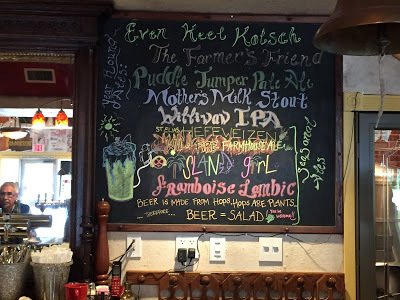 Even Keel Kolsch
The Farmer's Friend
Puddle Jumper Pale Ale
Mother's Milk Stout
IPA
HEFEWEIZEN
FARMHOUSE ALE
ISLAND GIRL
Framboise Lambic
BEER IS MADE FROM HOPS, HOPS ARE PLANTS,
THEREFORE.... BEER = SALAD!
Year Round Ales:
Seasonal Ales